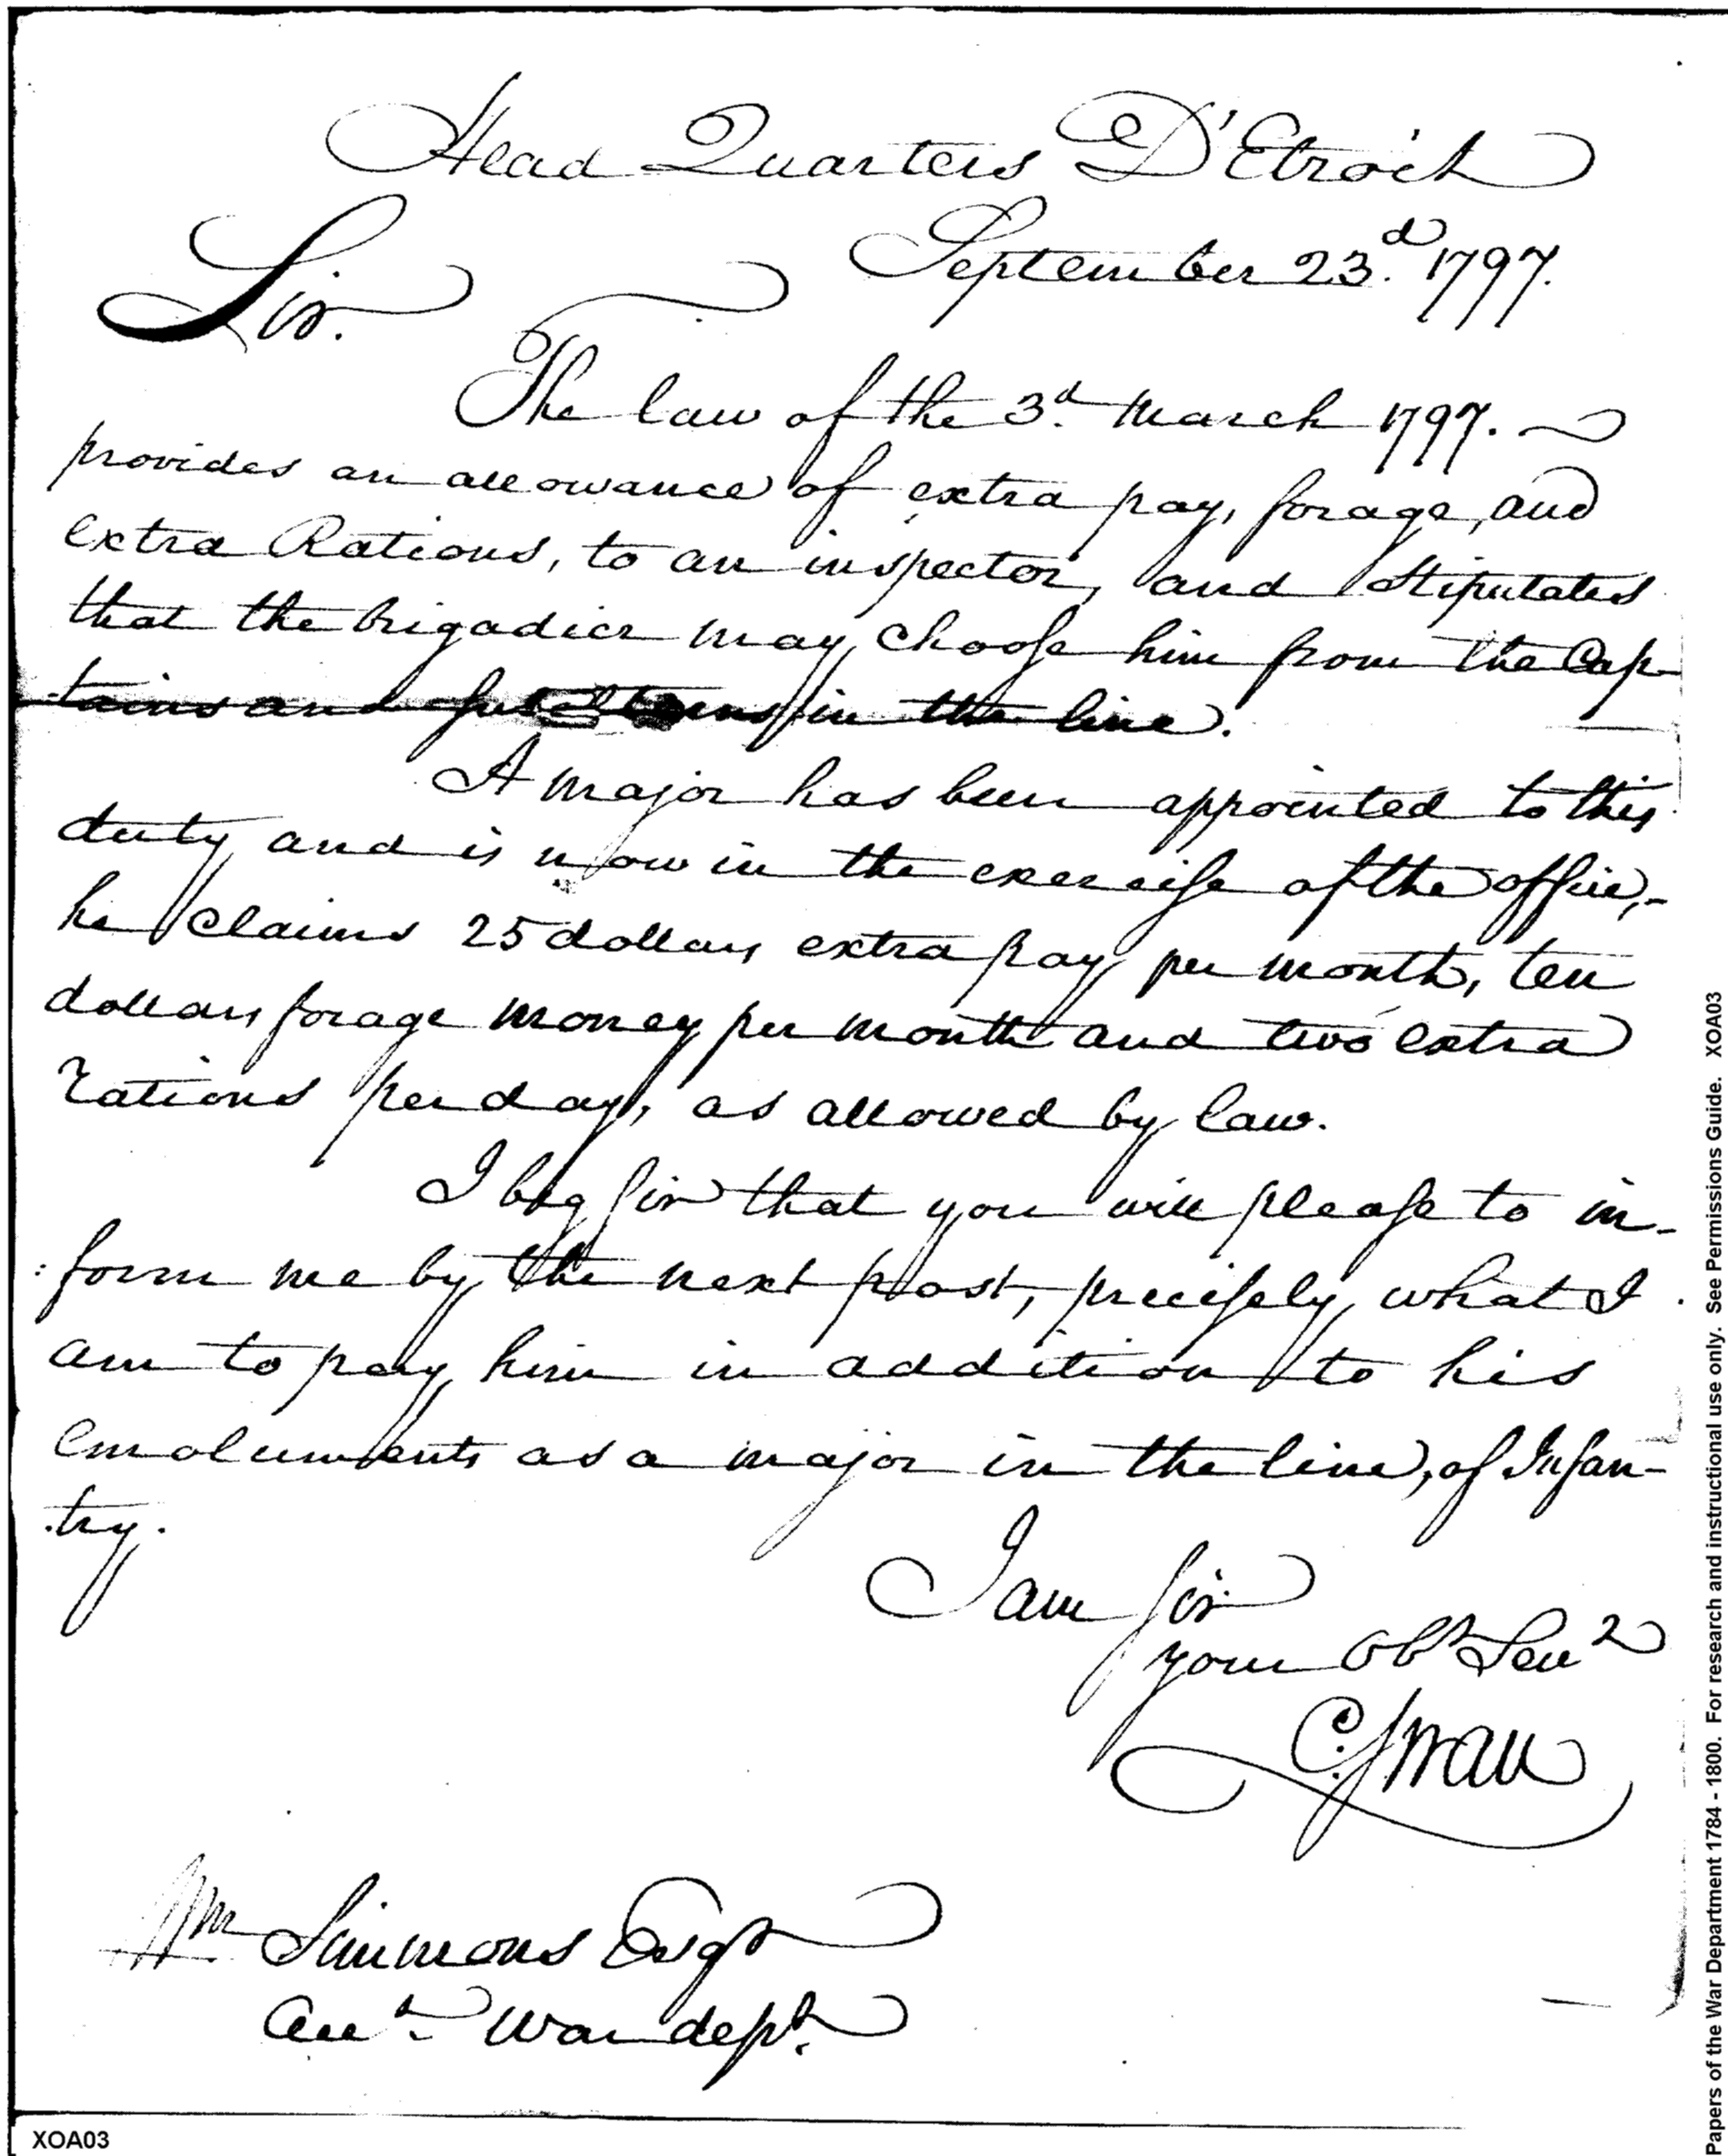 Head Quarters D'Etroit
September 23.d 1797.
Sir.
The law of the 3.d March 1797.
provides an allowance of extra pay, forage, and
extra Rations, to an inspector, and Stipulates
that the brigadier may choose him from the Cap-
-tains and subalterns in the line.
A major has been appointed to this
duty and is now in the exercise of the office,-
he claims 25 dollars extra pay per month, ten
dollars forage money per month and two extra
rations per day, as allowed by law.
I beg sir that you will please to in-
:form me by the next post, precisely what I
am to pay him in addition to his
emoluments as a major in the line, of Infan-
-try.
I am sir
your Obt Servt
C. Swan
Wm Simmons Esqr
Acct War dept.
XOA03
Papers of the War Department 1784 - 1800. For research and instructional use only. See Permissions Guide. XOA03